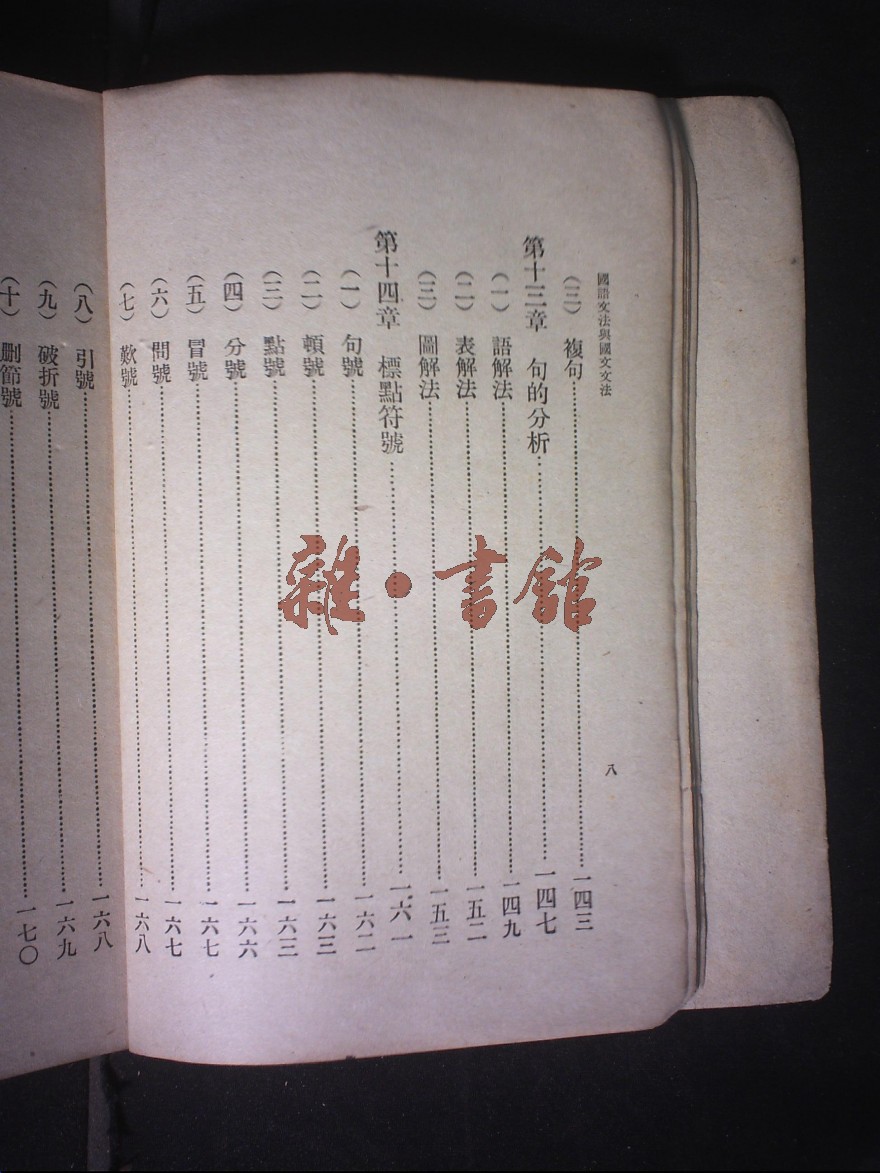 國語文法與國文文法
八
(三) 複句……一四三
第十三章 句的分析……一四七
(一) 語解法……一四九
(二) 表解法……一五二
(三) 圖解法……一五三
第十四章 標點符號……一六一
(一) 句號……一六二
(二) 頓號……一六三
(三) 點號……一六三
(四) 分號……一六六
(五) 冒號……一六七
(六) 問號……一六七
(七) 歎號……一六八
(八) 引號……一六八
(九) 破折號……一六九
(十) 刪節號……一七〇
雜·書館